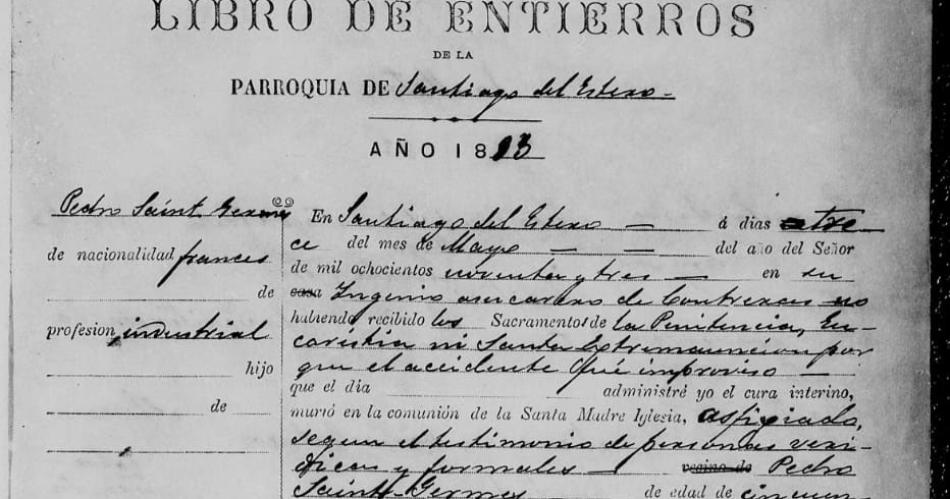 LIBRO DE ENTIERROS
DE LA
PARROQUIA DE Santiago del Estero
AÑO 1893
Pedro Saint Germes
de nacionalidad frances
de
profesion industrial
hijo
de
En Santiago del Estero á dias tre
ce del mes de Mayo del año del Señor
de mil ochocientos noventa y tres en su
casa Ingenio azucarero de Contreras no
habiendo recibido los Sacramentos de la Penitencia, Eu-
caristia ni Santa Extremauncion por
que el accidente fué improviso
que el día administré yo el cura interino,
murió en la comunión de la Santa Madre Iglesia, asficiado,
segun el testimonio de personas veri-
dicas y formales vecino de Pedro
Saint Germes de edad de cincuen